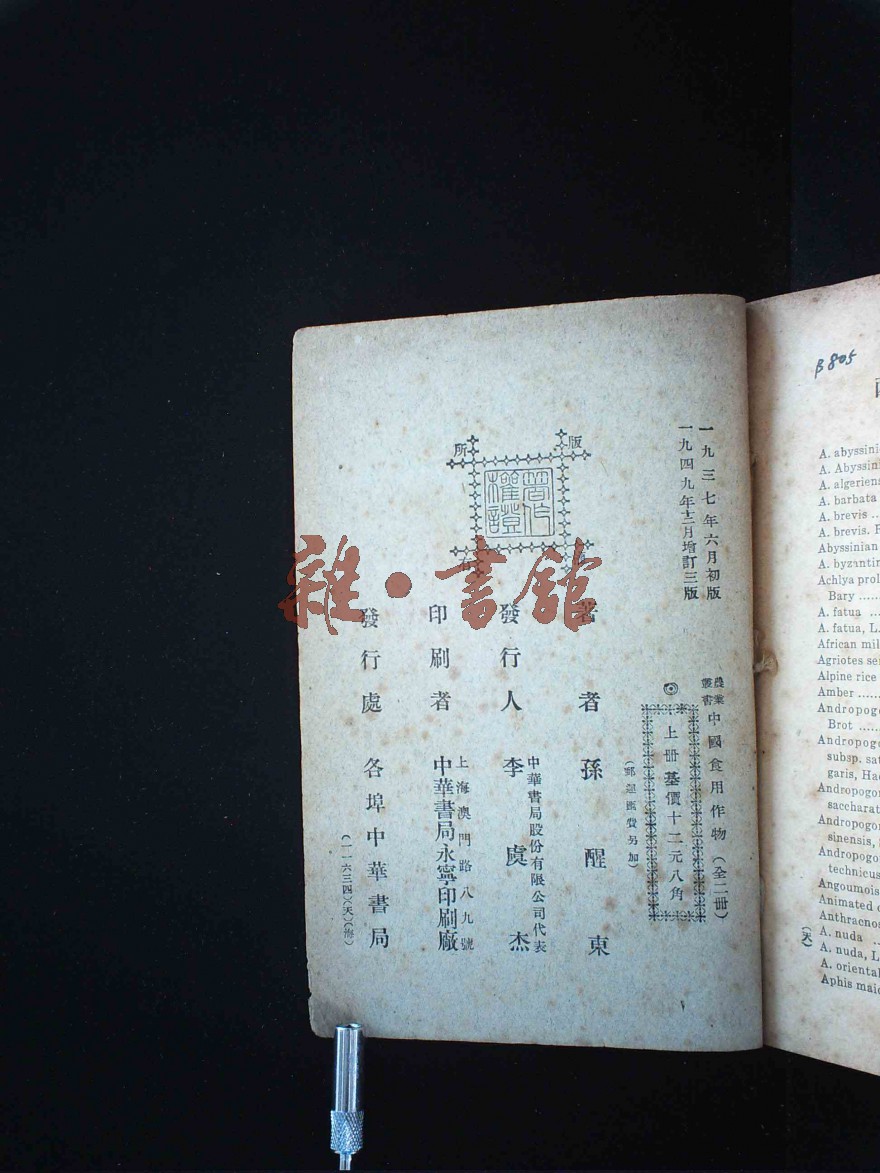 一九三七年六月初版
一九四九年十二月增訂三版
農業叢書 中國食用作物（全二册）
上册基價十二元八角
（郵運匯費另加）
版
所
有
著作權證
著者 孫醒東
發行人 李虞杰
中華書局股份有限公司代表
印刷者 中華書局永寧印刷廠
上海澳門路八九號
發行處 各埠中華書局
（一一六三四）（天）（海）
雜·書館
β805
A. abyssini
A. Abyssin
A. algeriens
A. barbata
A. brevis ..
A. brevis, R
Abyssinian
A. byzantin
Achlya prol
Bary ......
A. fatua ...
A. fatua, L.
African mil
Agriotes se
Alpine rice
Amber ......
Andropogo
Brot ......
Andropogo
subsp. sat
garis, Hac
Andropogon
saccharat
Andropogon
sinensis,
Andropogo
technicus
Angoumois
Animated o
Anthracnos
A. nuda ..
A. nuda, L
A. oriental
Aphis maid
（天）